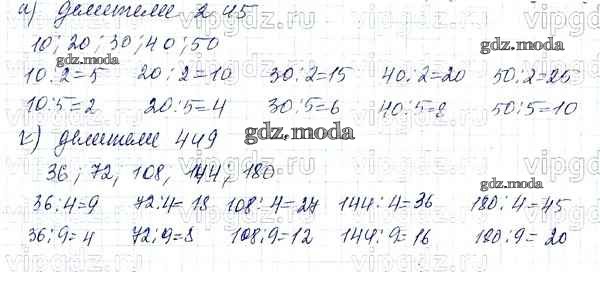 а) делители 2 и 5
10; 20; 30; 40; 50
10:2=5 20:2=10 30:2=15 40:2=20 50:2=25
10:5=2 20:5=4 30:5=6 40:5=8 50:5=10
г) делители 4 и 9
36; 72, 108, 144, 180
36:4=9 72:4=18 108:4=27 144:4=36 180:4=45
36:9=4 72:9=8 108:9=12 144:9=16 180:9=20
gdz.moda